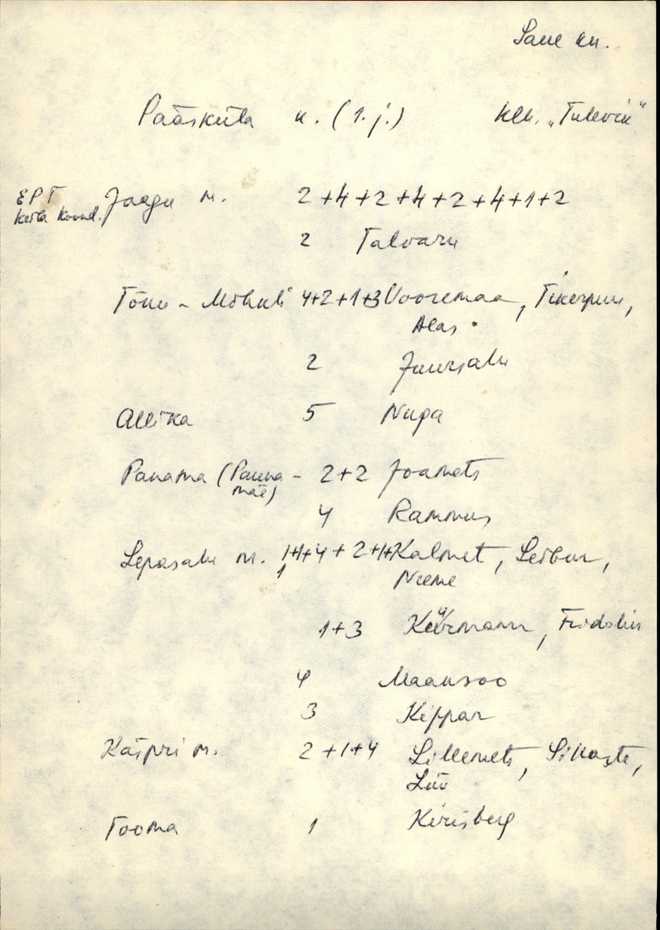 Saue kn.
Pääsküla k. (1. j.) klh. „Tulevik"
EPT Jaagu m. 2+4+2+4+2+4+1+2
2 Talvaru
Tõnu - Mõhuli 4+2+1+3 Vooremaa, Tikerpuu,
Alas.
2 Juursalu
Allika 5 Nupa
Panama (Pauna- 2+2 Joamets
mäe)
4 Rammus
Lepasalu m. Kalmet, Leibur,
1 Nieme
1+3
4 Maansoo
3 Kippar
Käspri m. 2+1+4 Lillemets, Sillaste,
Liiv
Tooma 1 Kirisberg